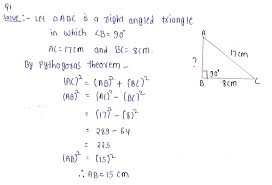 Q1
Solve :- Let ΔABC is a right angled triangle
in which ∠B = 90°
AC = 17cm and BC = 8cm.
By Pythagoras theorem -
(AC)² = (AB)² + (BC)²
(AB)² = (AC)² - (BC)²
= (17)² - (8)²
= 289 - 64
= 225
(AB)² = (15)²
∴ AB = 15 cm
A
17cm
?
90°
B
8cm
C